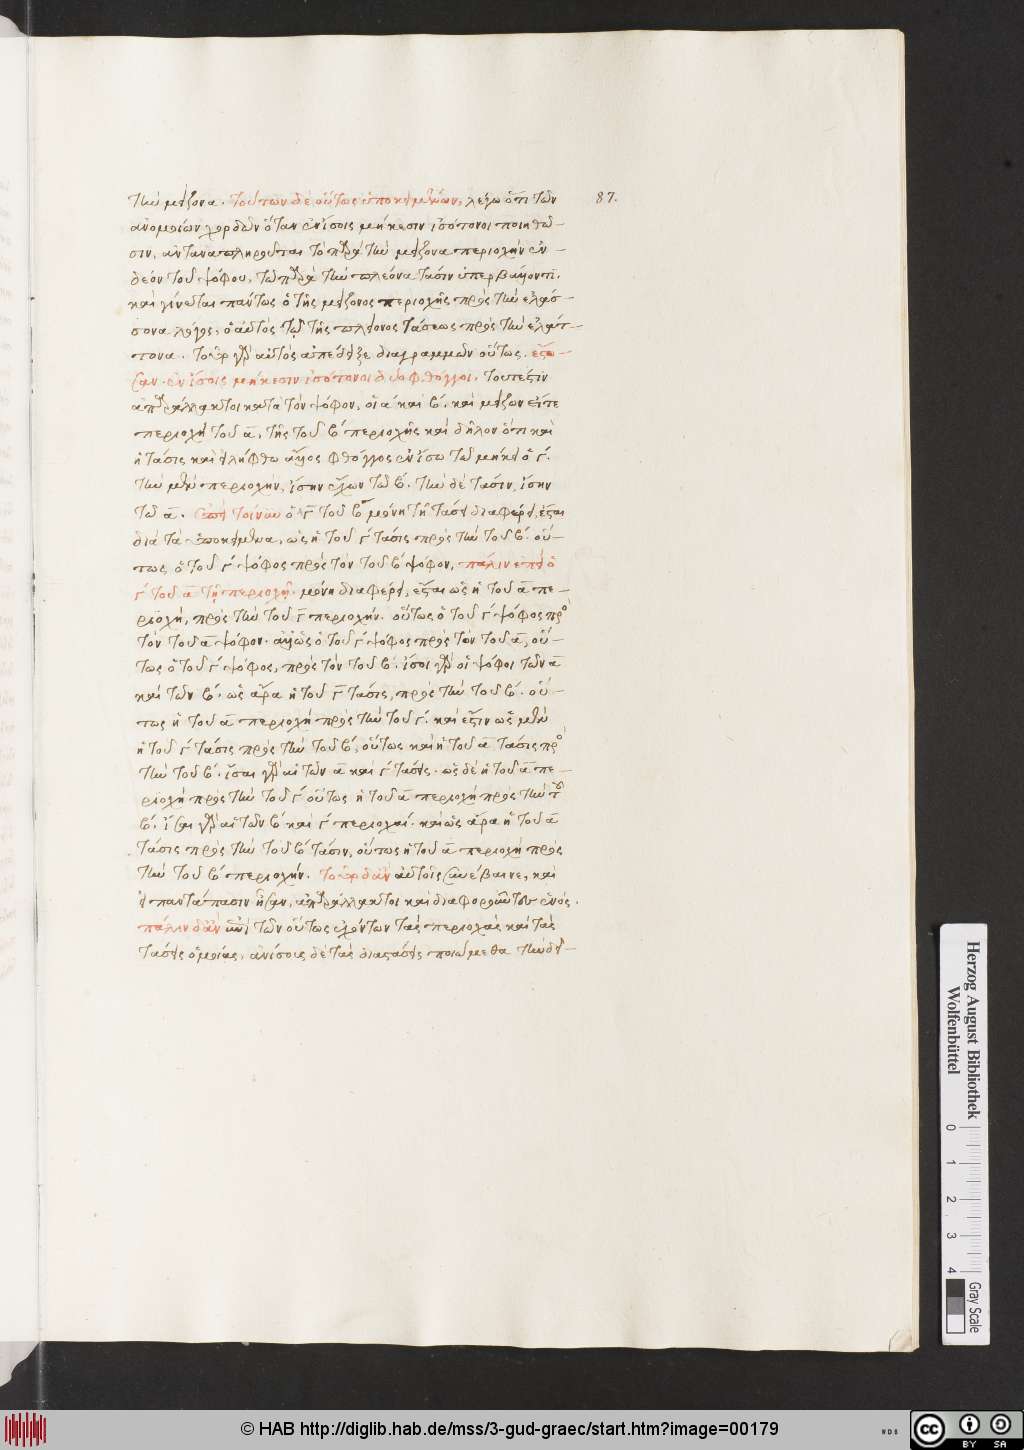 τὴν μείζονα. τούτων δὲ οὕτως ὑποκειμένων, λέγω ὅτι τῶν 87.
ἀνομοίων χορδῶν ὅταν ἐν ἴσοις μήκεσιν ἰσότονοι ποιηθῶ-
σιν, ἀνταναπληροῦται τὸ παρὰ τὴν μείζονα περιοχὴν ἐν-
δεὸν τοῦ ψόφου, τῷ παρὰ τὴν πλείονα τάσιν ὑπερβαίνοντι.
καὶ γίνεται πάντως ὁ τῆς μείζονος περιοχῆς πρὸς τὴν ἐλάσ-
σονα λόγος, ὁ αὐτὸς τῷ τῆς πλείονος τάσεως πρὸς τὴν ἐλάτ-
τονα. τοῦτο γὰρ αὐτὸς ἀπέδειξε διαγραμμῶν οὕτως. ἔστω-
σαν ἐν ἴσοις μήκεσιν ἰσότονοι δύο φθόγγοι. τουτέστιν
ἀπαράλλακτοι κατὰ τὸν ψόφον, οἱ α καὶ β. καὶ μείζων ἔστω
περιοχὴ τοῦ α, τῆς τοῦ β περιοχῆς καὶ δῆλον ὅτι καὶ
ἡ τάσις καὶ εἰλήφθω ἄλλος φθόγγος ἐν ἴσῳ τῷ μήκει ὁ γ.
τὴν μὲν περιοχὴν, ἴσην ἔχων τῷ β. τὴν δὲ τάσιν, ἴσην
τῷ α. ἐπεὶ τοίνυν ὁ γ τοῦ β μόνῃ τῇ τάσει διαφέρει, ἔσται
διὰ τὰ ὑποκείμενα, ὡς ἡ τοῦ γ τάσις πρὸς τὴν τοῦ β. οὕ-
τως ὁ τοῦ γ ψόφος πρὸς τὸν τοῦ β ψόφον, πάλιν ἐπεὶ ὁ
γ τοῦ α τῇ περιοχῇ μόνῃ διαφέρει, ἔσται ὡς ἡ τοῦ α πε-
ριοχή, πρὸς τὴν τοῦ γ περιοχήν. οὕτως ὁ τοῦ γ ψόφος πρὸς
τὸν τοῦ α ψόφον. ἀλλ' ὡς ὁ τοῦ γ ψόφος πρὸς τὸν τοῦ α, οὕ-
τως ὁ τοῦ γ ψόφος, πρὸς τὸν τοῦ β. ἴσοι γὰρ οἱ ψόφοι τῶν α
καὶ τῶν β. ὡς ἄρα ἡ τοῦ γ τάσις, πρὸς τὴν τοῦ β. οὕ-
τως ἡ τοῦ α περιοχὴ πρὸς τὴν τοῦ γ. καὶ ἔστιν ὡς μὲν
ἡ τοῦ γ τάσις πρὸς τὴν τοῦ β, οὕτως καὶ ἡ τοῦ α τάσις πρὸς
τὴν τοῦ β. ἴσαι γὰρ αἱ τῶν α καὶ γ τάσεις. ὡς δὲ ἡ τοῦ α πε-
ριοχὴ πρὸς τὴν τοῦ γ οὕτως ἡ τοῦ α περιοχὴ πρὸς τὴν τοῦ
β. ἴσαι γὰρ αἱ τῶν β καὶ γ περιοχαί. καὶ ὡς ἄρα ἡ τοῦ α
τάσις πρὸς τὴν τοῦ β τάσιν, οὕτως ἡ τοῦ α περιοχὴ πρὸς
τὴν τοῦ β περιοχήν. τοῦτο δ' ἂν αὐτοῖς συνέβαινε, καὶ
εἰ παντάπασιν ἦσαν, ἀπαράλλακτοι καὶ διαφοροῦντος ἑνός.
πάλιν δ' ἂν τῶν οὕτως ἐχόντων τὰς περιοχὰς καὶ τὰς
τάσεις ὁμοίας, ἀνίσους δὲ τὰς διαστάσεις ποιώμεθα τὴν δι-
Herzog August Bibliothek
Wolfenbüttel
0 1 2 3 4
Gray Scale
© HAB http://diglib.hab.de/mss/3-gud-graec/start.htm?image=00179
WDB
cc BY SA